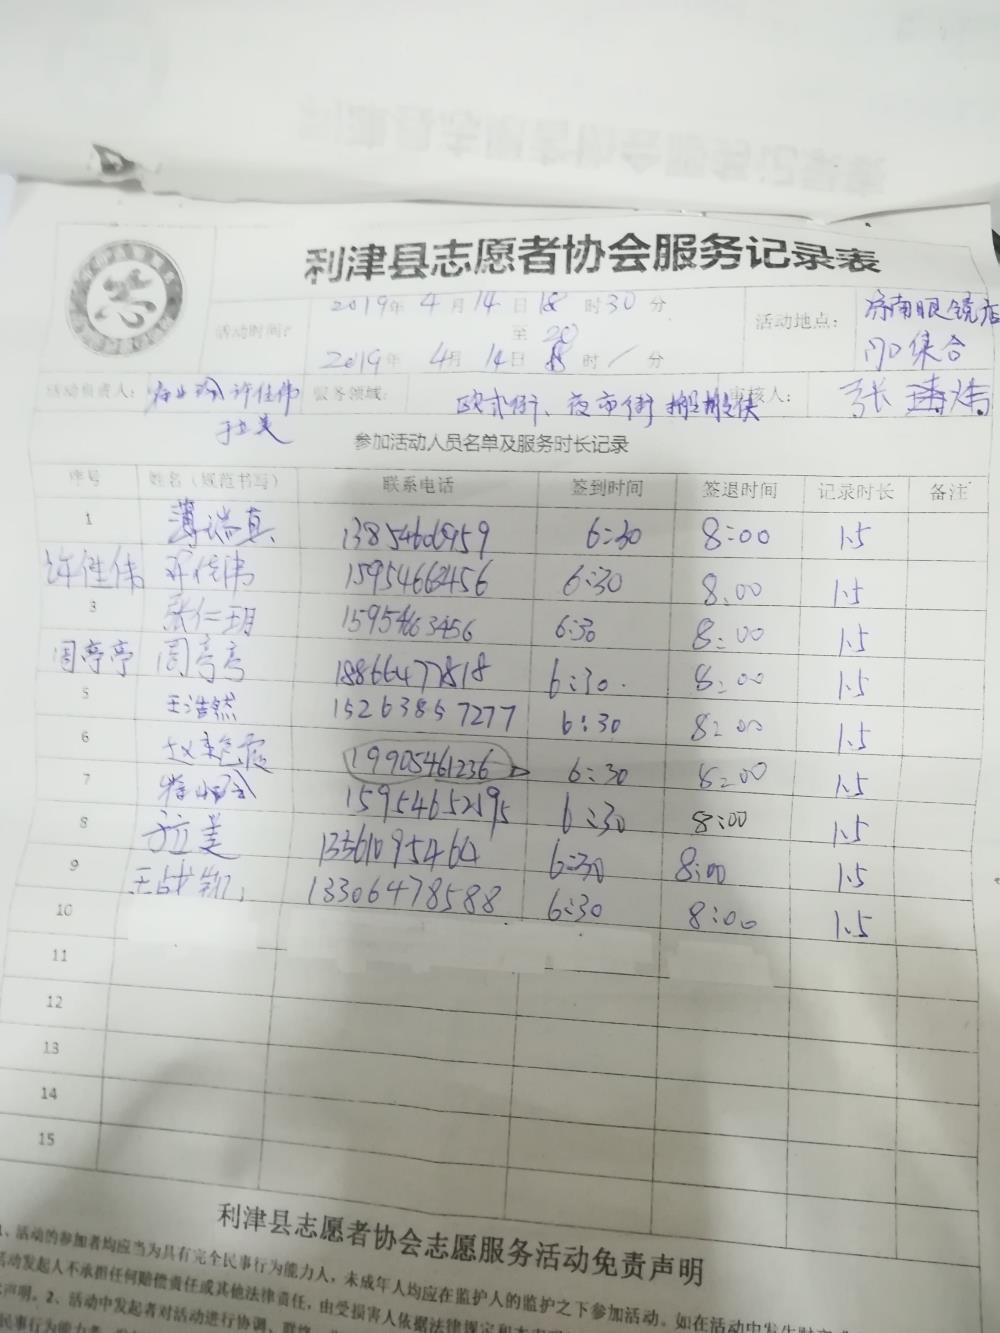 利津县志愿者协会服务记录表
活动时间: 2019年 4月 14日 18时30分
至
2019年 4月 14日 20时/分
活动地点: 济南眼镜店门口集合
活动负责人: 许佳伟
服务领域: 欧式街、夜市街
审核人: 张
参加活动人员名单及服务时长记录
序号 姓名(规范书写) 联系电话 签到时间 签退时间 记录时长 备注
1 薄瑞真 6:30 8:00 1.5
许佳伟 许佳伟 15954663456 6:30 8.00 1.5
3 张仁玥 15954663456 6:30 8:00 1.5
周亭亭 周亭亭 18866477818 6:30 8:00 1.5
5 王浩然 15263857277 6:30 8:00 1.5
6 赵艳霞 19905461236 6:30 8:00 1.5
7 6:30 8:00 1.5
8 13361095464 6:30 8:00 1.5
9 王战凯 13306478588 6:30 8:00 1.5
10
11
12
13
14
15
利津县志愿者协会志愿服务活动免责声明
1、活动的参加者均应当为具有完全民事行为能力人，未成年人均应在监护人的监护之下参加活动。如在活动中发生
活动发起人不承担任何赔偿责任或其他法律责任，由受损害人依据法律规定和本
声明。2、活动中发起者对活动进行协调、
民事行为能力